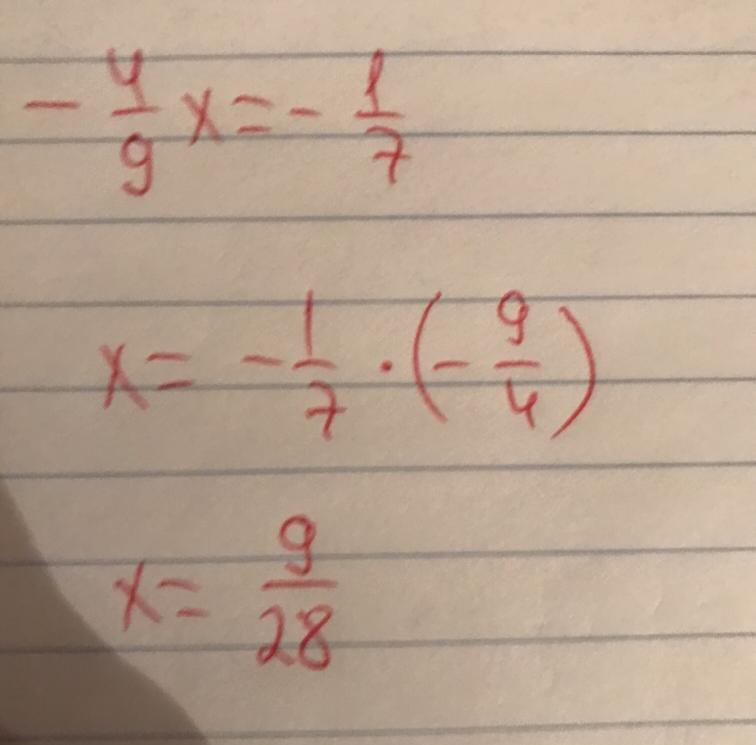 - 4/9 x = - 1/7
x = - 1/7 · (- 9/4)
x = 9/28